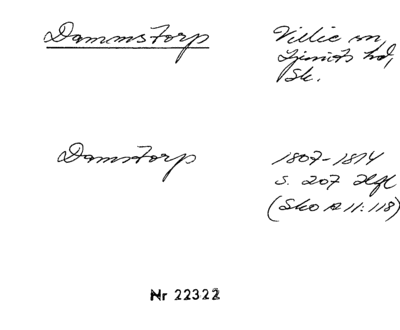 Dammstorp
Villie sn,
Ljunits hd,
Sk.
Damstorp
1807-1814
s. 207 Hfl
(Sko A II:118)
Nr 22322